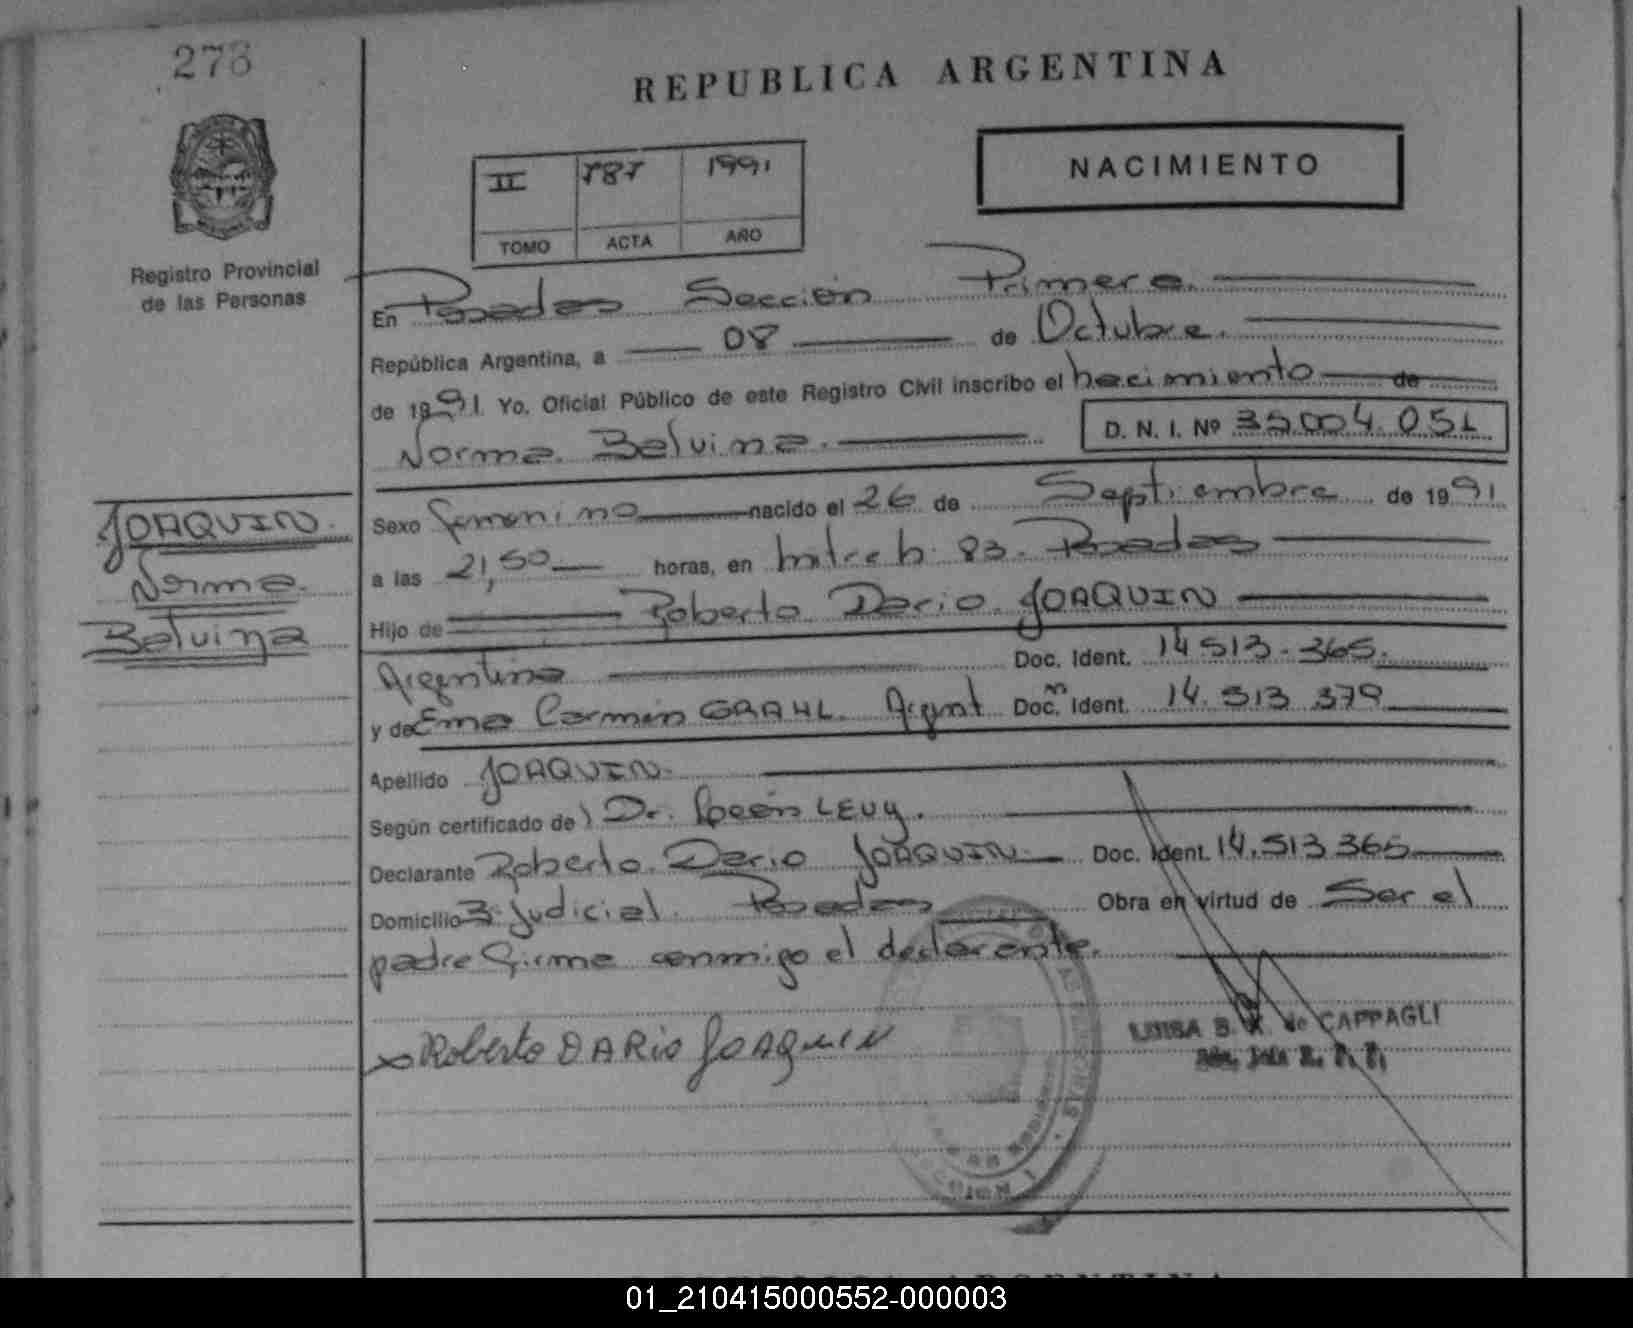 273
REPUBLICA ARGENTINA
NACIMIENTO
II 787 1991
TOMO ACTA AÑO
Registro Provincial
de las Personas
En Posadas Sección Primera.
República Argentina, a 08 de Octubre.
de 1991. Yo, Oficial Público de este Registro Civil inscribo el nacimiento de
Norma Belvina. D. N. I. Nº
JOAQUIN.
Norma
Belvina
Sexo femenino nacido el 26 de Septiembre de 1991
a las 21,50 horas, en Mitre b. 83. Posadas
Hijo de Roberto Dario JOAQUIN
Argentino Doc. Ident. 14 513.365.
y de Ema Carmen GRAHL. Argent Doc. Ident. 14.513 379
Apellido JOAQUIN.
Según certificado de Dr. LEVY.
Declarante Roberto Dario JOAQUIN Doc. Ident. 14.513 365
Domicilio Judicial. Posadas Obra en virtud de Ser el
padre firma conmigo el declarante.
Roberto DARIO JOAQUIN
LUISA B. de CAPPAGLI
01_210415000552-000003